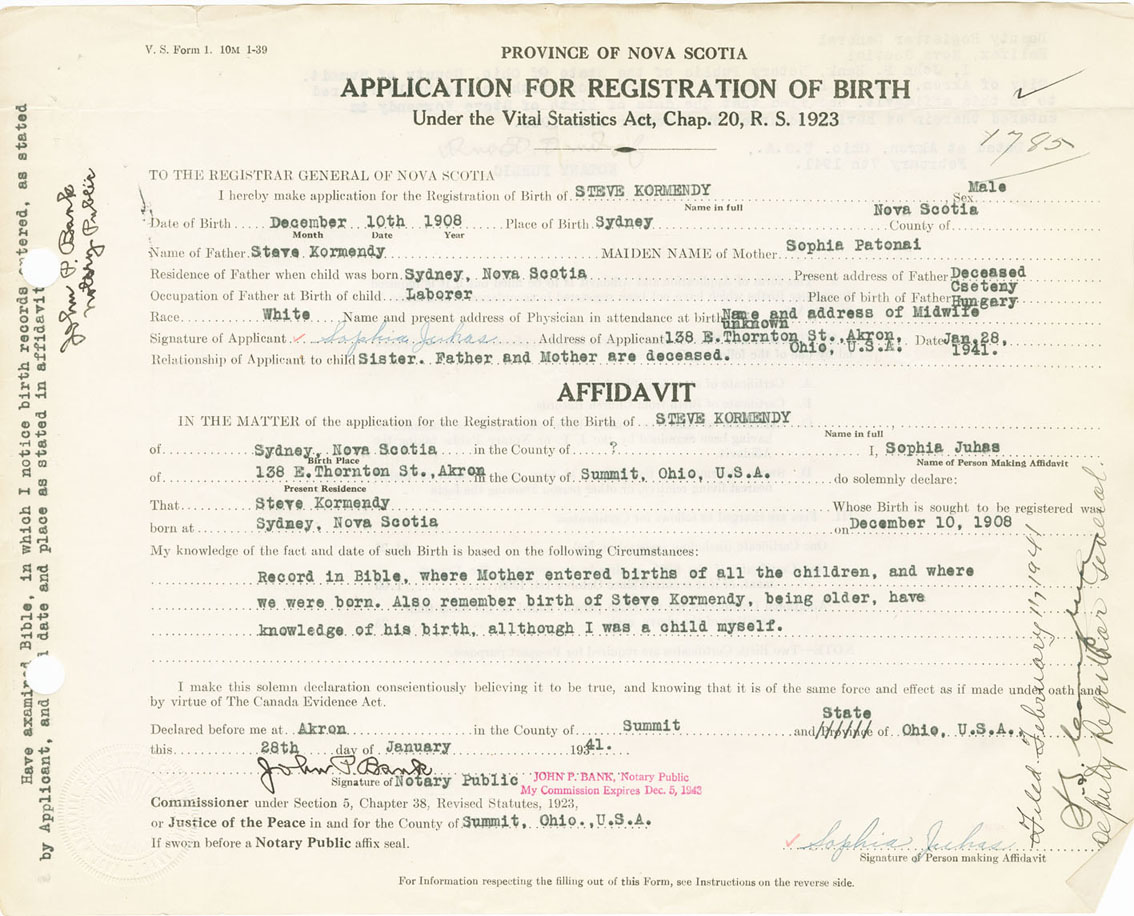 V. S. Form 1. 10M 1-39
PROVINCE OF NOVA SCOTIA
APPLICATION FOR REGISTRATION OF BIRTH
Under the Vital Statistics Act, Chap. 20, R. S. 1923
1785
TO THE REGISTRAR GENERAL OF NOVA SCOTIA
I hereby make application for the Registration of Birth of STEVE KORMENDY Sex Male
Name in full
Date of Birth December 10th 1908 Place of Birth Sydney County of Nova Scotia
Month Date Year
Name of Father Steve Kormendy MAIDEN NAME of Mother Sophia Patonai
Residence of Father when child was born Sydney, Nova Scotia Present address of Father Deceased
Occupation of Father at Birth of child Laborer Place of birth of Father Cseteny Hungary
Race White Name and present address of Physician in attendance at birth Name and address of Midwife unknown
Signature of Applicant Sophia Juhas Address of Applicant 138 E.Thornton St., Akron, Ohio, U.S.A. Date Jan.28, 1941.
Relationship of Applicant to child Sister. Father and Mother are deceased.
AFFIDAVIT
IN THE MATTER of the application for the Registration of the Birth of STEVE KORMENDY
Name in full
of Sydney, Nova Scotia in the County of ? I, Sophia Juhas
Birth Place Name of Person Making Affidavit
of 138 E.Thornton St., Akron in the County of Summit, Ohio, U.S.A. do solemnly declare:
Present Residence
That Steve Kormendy Whose Birth is sought to be registered was
born at Sydney, Nova Scotia on December 10, 1908
My knowledge of the fact and date of such Birth is based on the following Circumstances:
Record in Bible, where Mother entered births of all the children, and where
we were born. Also remember birth of Steve Kormendy, being older, have
knowledge of his birth, allthough I was a child myself.
I make this solemn declaration conscientiously believing it to be true, and knowing that it is of the same force and effect as if made under oath and
by virtue of The Canada Evidence Act.
Declared before me at Akron in the County of Summit and Province of State Ohio, U.S.A.
this 28th day of January 1941.
John P. Bank
Signature of Notary Public JOHN P. BANK, Notary Public
My Commission Expires Dec. 5, 1943
Commissioner under Section 5, Chapter 38, Revised Statutes, 1923,
or Justice of the Peace in and for the County of Summit, Ohio., U.S.A.
If sworn before a Notary Public affix seal.
Sophia Juhas
Signature of Person making Affidavit
For Information respecting the filling out of this Form, see Instructions on the reverse side.
Have axamined Bible, in which I notice birth records entered, as stated
by Applicant, and date and place as stated in affidavit
John P. Bank
Notary Public
Filed February 17, 1941
Deputy Registrar General.